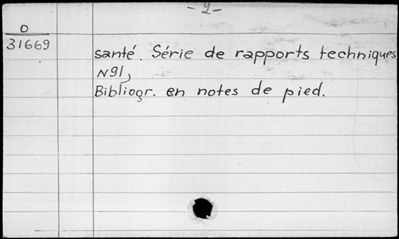 - 2 -
0
31669
santé. Série de rapports techniques
N91,
Bibliogr. en notes de pied.